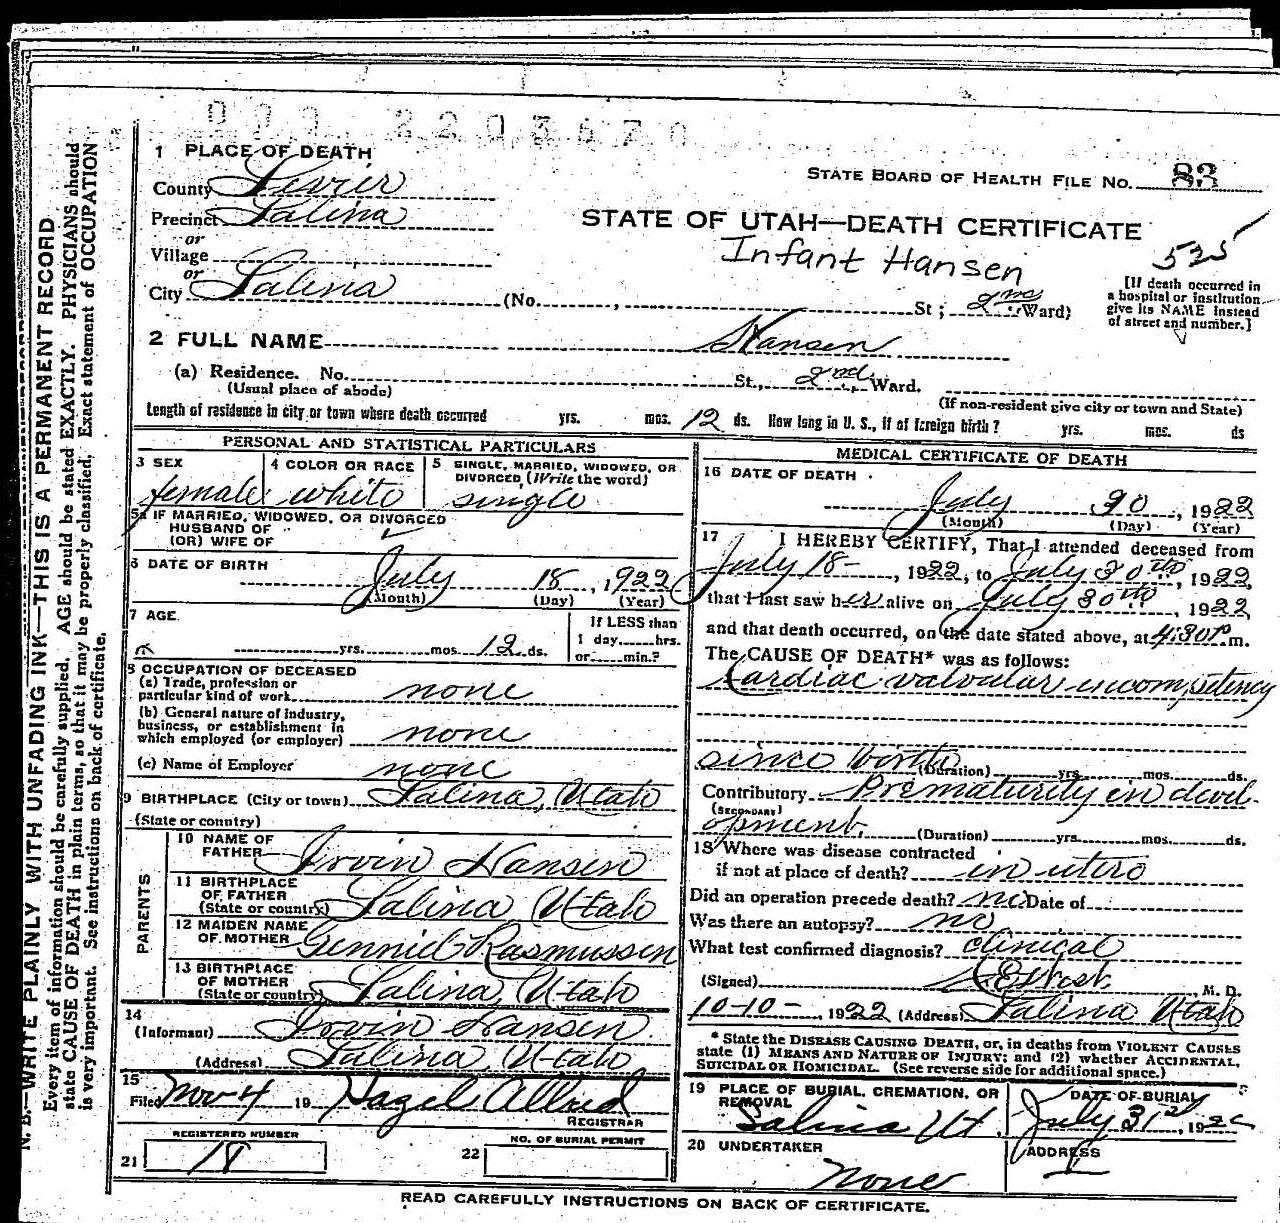 1 PLACE OF DEATH
County Sevier
Precinct Salina
or
Village
or
City Salina (No. , St ; 2nd Ward)
STATE BOARD OF HEALTH FILE NO. 83
STATE OF UTAH—DEATH CERTIFICATE
Infant Hansen
535
[If death occurred in
a hospital or institution
give its NAME instead
of street and number.]
2 FULL NAME Hansen
(a) Residence. No. St., 2nd Ward.
(Usual place of abode) (If non-resident give city or town and State)
Length of residence in city or town where death occurred yrs. mos. 12 ds. How long in U. S., if of foreign birth? yrs. mos. ds
PERSONAL AND STATISTICAL PARTICULARS
3 SEX
female
4 COLOR OR RACE
white
5 SINGLE, MARRIED, WIDOWED, OR
DIVORCED, (Write the word)
single
5a IF MARRIED, WIDOWED, OR DIVORCED
HUSBAND OF
(OR) WIFE OF
6 DATE OF BIRTH
July 18, 1922
(Month) (Day) (Year)
7 AGE
yrs. mos. 12 ds.
If LESS than
1 day hrs.
or min.?
8 OCCUPATION OF DECEASED
(a) Trade, profession or
particular kind of work none
(b) General nature of industry,
business, or establishment in
which employed (or employer) none
(c) Name of Employer none
9 BIRTHPLACE (City or town) Salina, Utah
(State or country)
PARENTS
10 NAME OF
FATHER Irvin Hansen
11 BIRTHPLACE
OF FATHER
(State or country) Salina, Utah
12 MAIDEN NAME
OF MOTHER Gennie Rasmussen
13 BIRTHPLACE
OF MOTHER
(State or country) Salina, Utah
14
(Informant) Irvin Hansen
(Address) Salina, Utah
15
Filed Nov 4 19 Hazel Allred
REGISTRAR
REGISTERED NUMBER
21 18
NO. OF BURIAL PERMIT
22
MEDICAL CERTIFICATE OF DEATH
16 DATE OF DEATH
July 30, 1922
(Month) (Day) (Year)
17 I HEREBY CERTIFY, That I attended deceased from
July 18-, 1922, to July 30th, 1922
that I last saw her alive on July 30th, 1922
and that death occurred, on the date stated above, at 4:30P m.
The CAUSE OF DEATH* was as follows:
Cardiac valvular incompetency
since birth (Duration) yrs mos. ds.
Contributory Prematurity in devel-
(SECONDARY)
opment. (Duration) yrs mos. ds.
18 Where was disease contracted
if not at place of death? in utero
Did an operation precede death? no Date of
Was there an autopsy? no
What test confirmed diagnosis? clinical
(Signed) West, M. D.
10-10-, 1922 (Address) Salina Utah
* State the DISEASE CAUSING DEATH, or, in deaths from VIOLENT CAUSES
state (1) MEANS AND NATURE OF INJURY; and (2) whether ACCIDENTAL,
SUICIDAL OR HOMICIDAL. (See reverse side for additional space.)
19 PLACE OF BURIAL, CREMATION, OR
REMOVAL
Salina Ut.
DATE OF BURIAL
July 31st, 192
20 UNDERTAKER
none
ADDRESS
READ CAREFULLY INSTRUCTIONS ON BACK OF CERTIFICATE.
N. B.—WRITE PLAINLY WITH UNFADING INK—THIS IS A PERMANENT RECORD
Every item of information should be carefully supplied. AGE should be stated EXACTLY. PHYSICIANS should
state CAUSE OF DEATH in plain terms, so that it may be properly classified. Exact statement of OCCUPATION
is very important. See instructions on back of certificate.